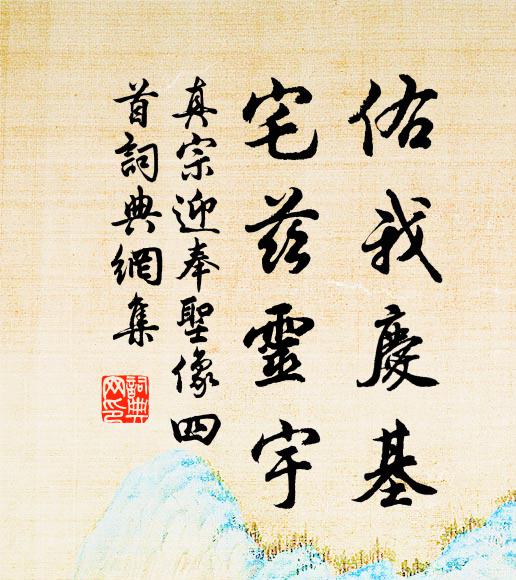 佑我慶基
宅茲靈宇
真宗迎奉聖像四
首詞典網集
詞典
网印